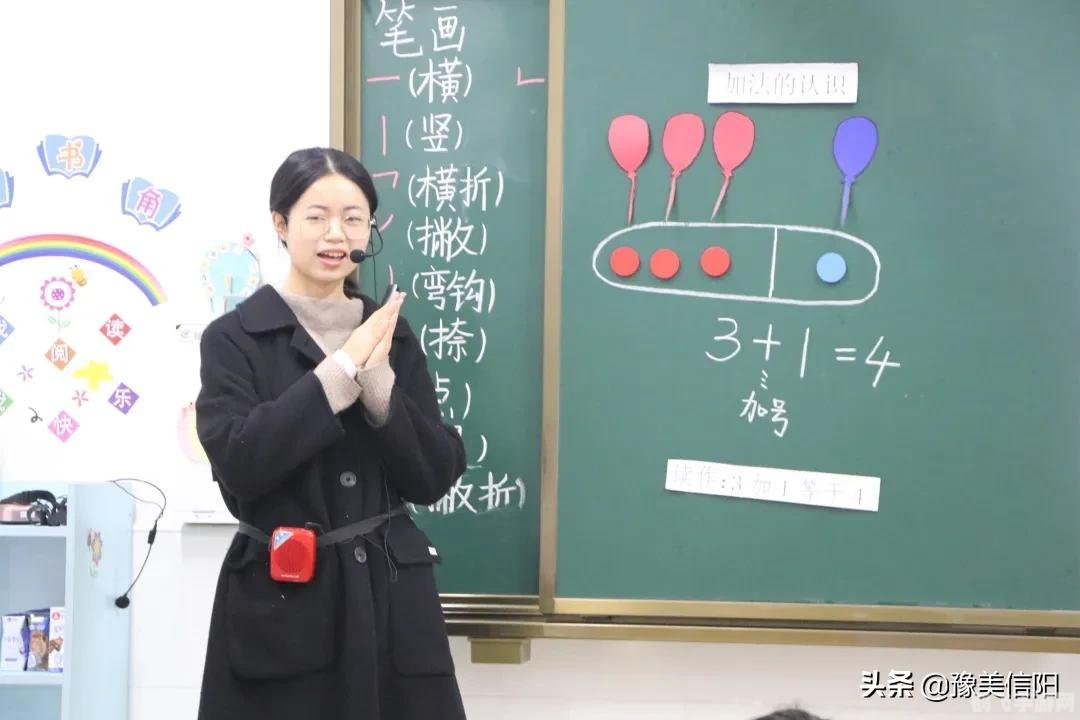 书
角
读
阅
乐
快
笔画
(横)
(竖)
(横折)
(撇)
(弯钩)
(捺)
点)
撇折)
加法的认识
3+1=4
加号
读作:3加1等于4
头条 @豫美信阳